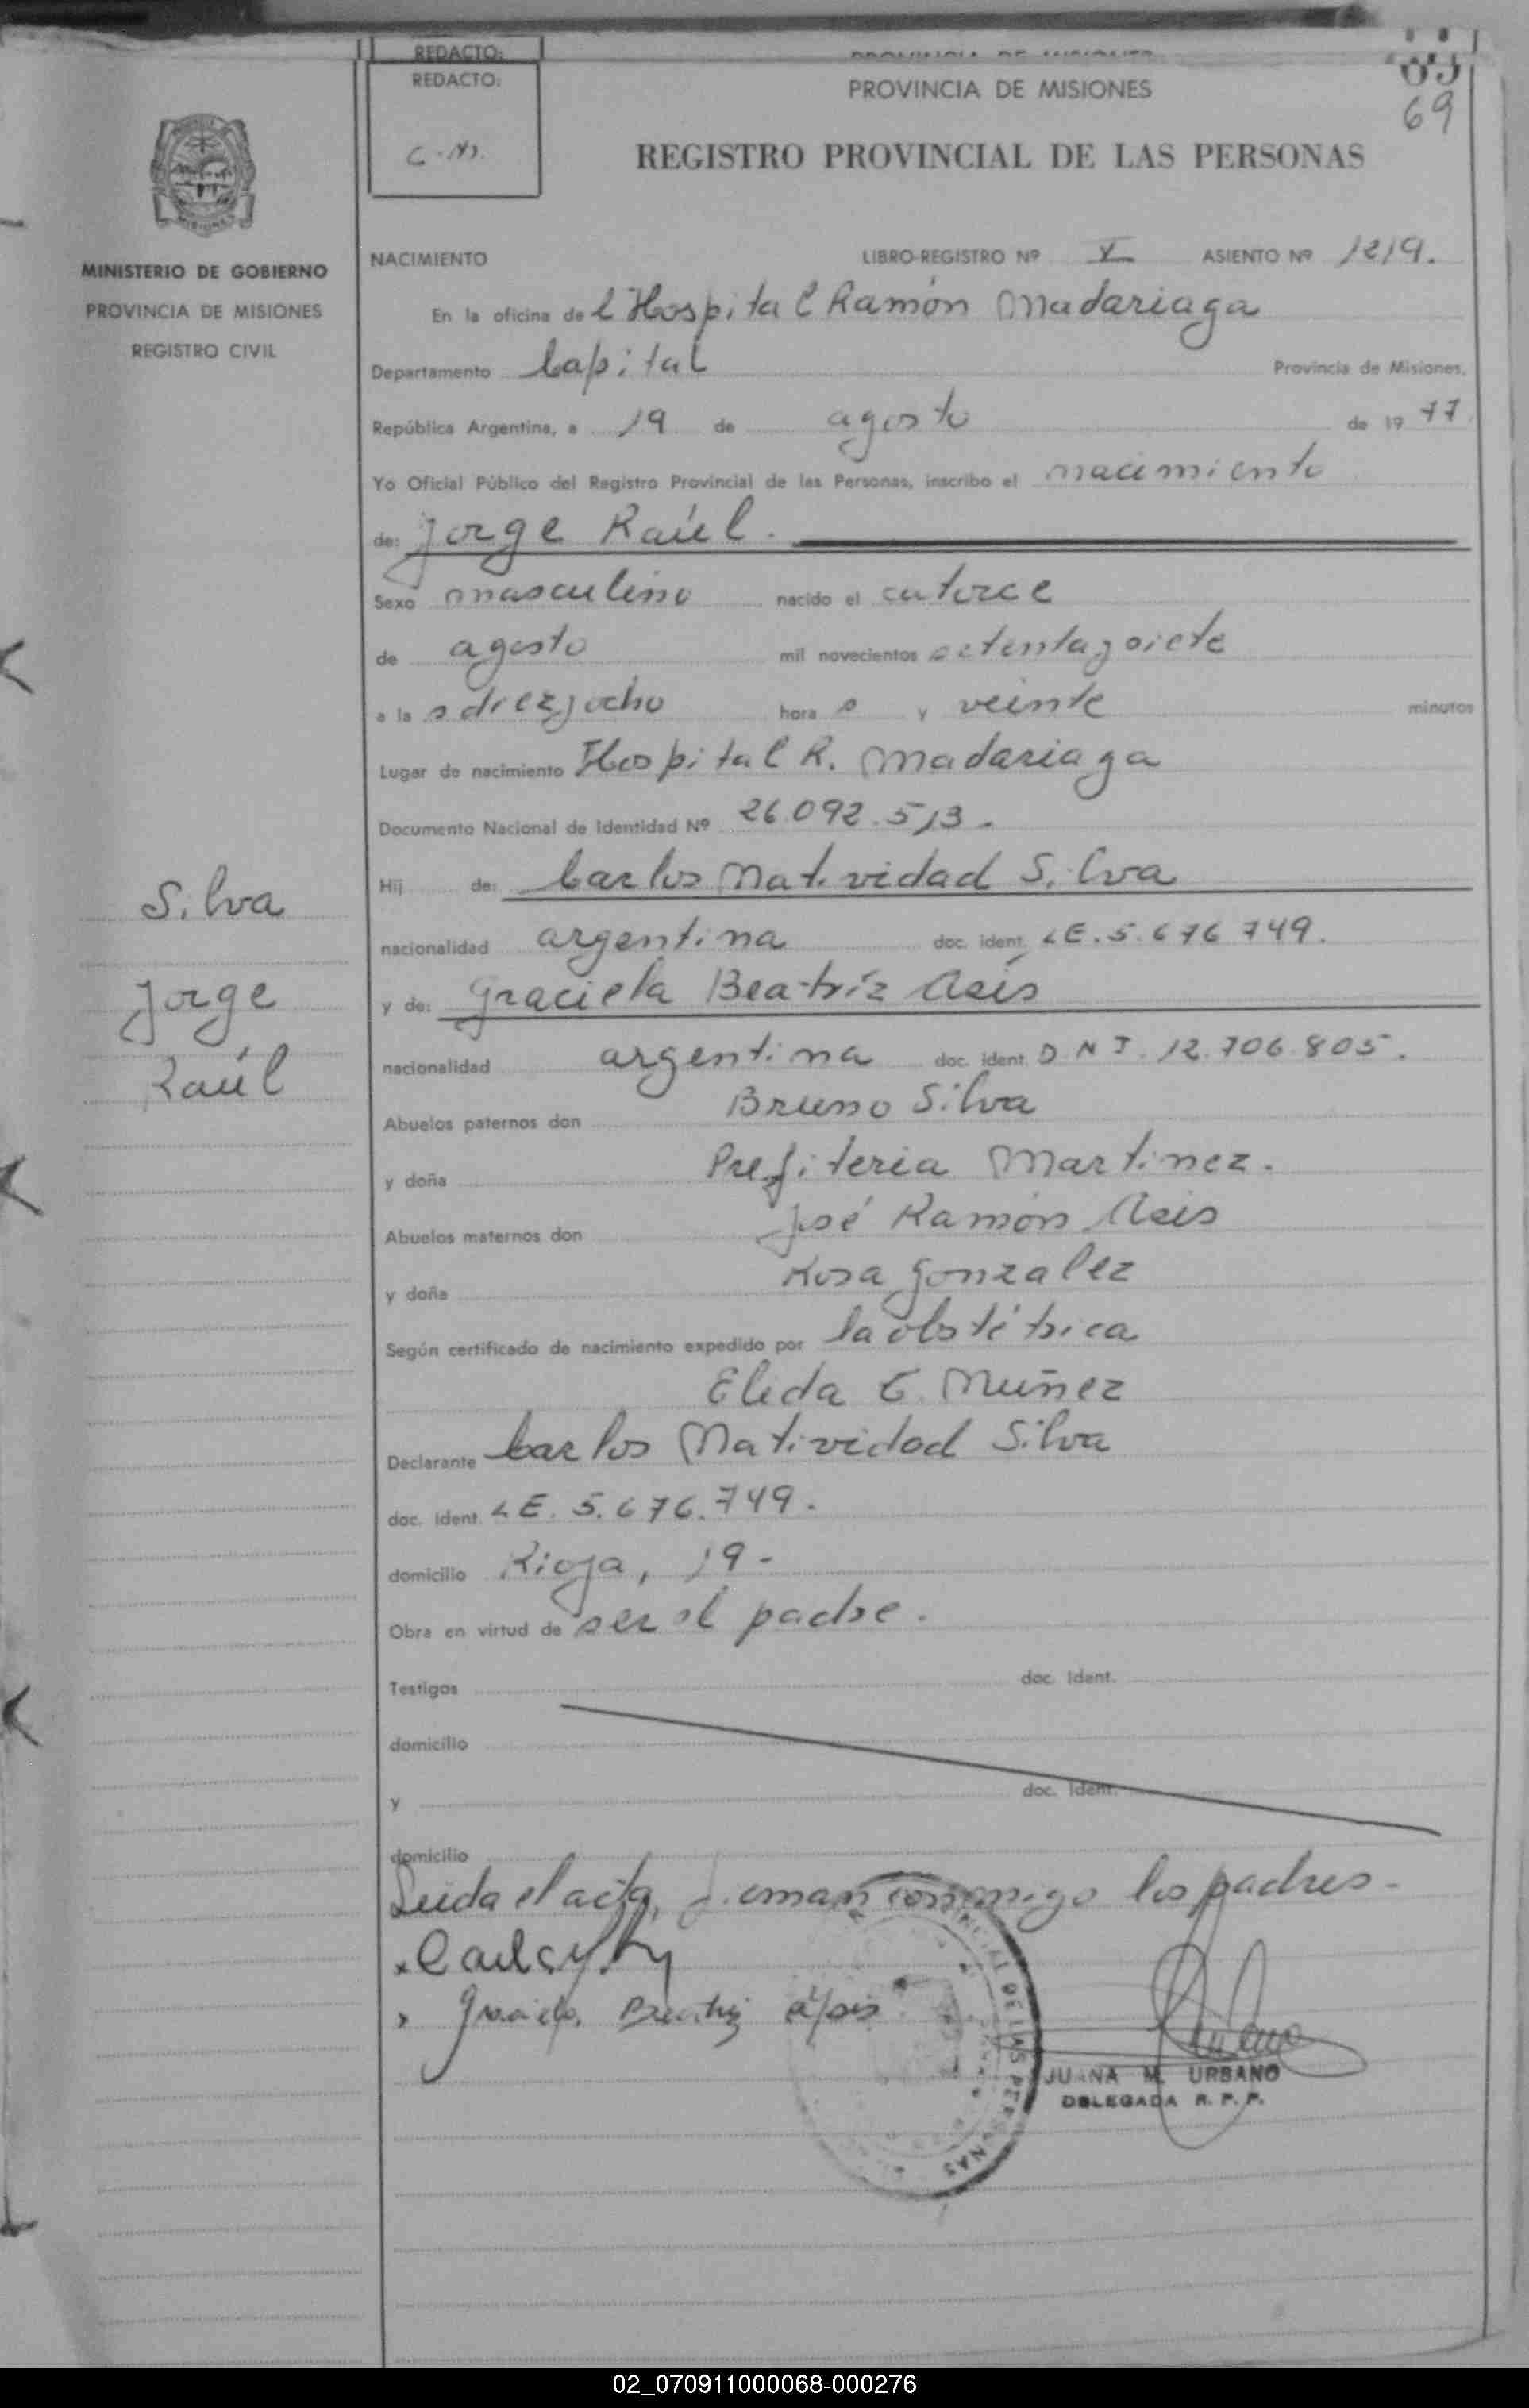 REDACTO:
REDACTO:
C-N).
PROVINCIA DE MISIONES
69
REGISTRO PROVINCIAL DE LAS PERSONAS
MINISTERIO DE GOBIERNO
PROVINCIA DE MISIONES
REGISTRO CIVIL
NACIMIENTO LIBRO-REGISTRO Nº V ASIENTO Nº 1219.
En la oficina del Hospital Ramón Madariaga
Departamento Capital Provincia de Misiones,
República Argentina, a 19 de agosto de 1977
Yo Oficial Público del Registro Provincial de las Personas, inscribo el nacimiento
de: Jorge Raúl.
Sexo masculino nacido el catorce
de agosto mil novecientos setenta y siete
a las diez y ocho horas y veinte minutos
Lugar de nacimiento Hospital R. Madariaga
Documento Nacional de Identidad Nº 26.092.513.
Hij de: Carlos Natividad Silva
nacionalidad argentina doc. ident. LE. 5.676.749.
y de: Graciela Beatríz Asís
nacionalidad argentina doc. ident. DNI. 12.706.805.
Abuelos paternos don Bruno Silva
y doña Prefiteria Martinez.
Abuelos maternos don José Ramón Asis
y doña Rosa Gonzalez
Según certificado de nacimiento expedido por la obstétrica
Eleda E. Muñez
Declarante Carlos Natividad Silva
doc. ident. LE. 5.676.749.
domicilio Rioja, 19-
Obra en virtud de ser el padre.
Testigos doc. Ident.
domicilio
y doc. Ident.
domicilio
Leida el acta, firman conmigo los padres-
Graciela Beatriz Asis
JUANA M. URBANO
DELEGADA R. P. P.
DE LAS PERSONAS
Silva
Jorge
Raúl
02_070911000068-000276